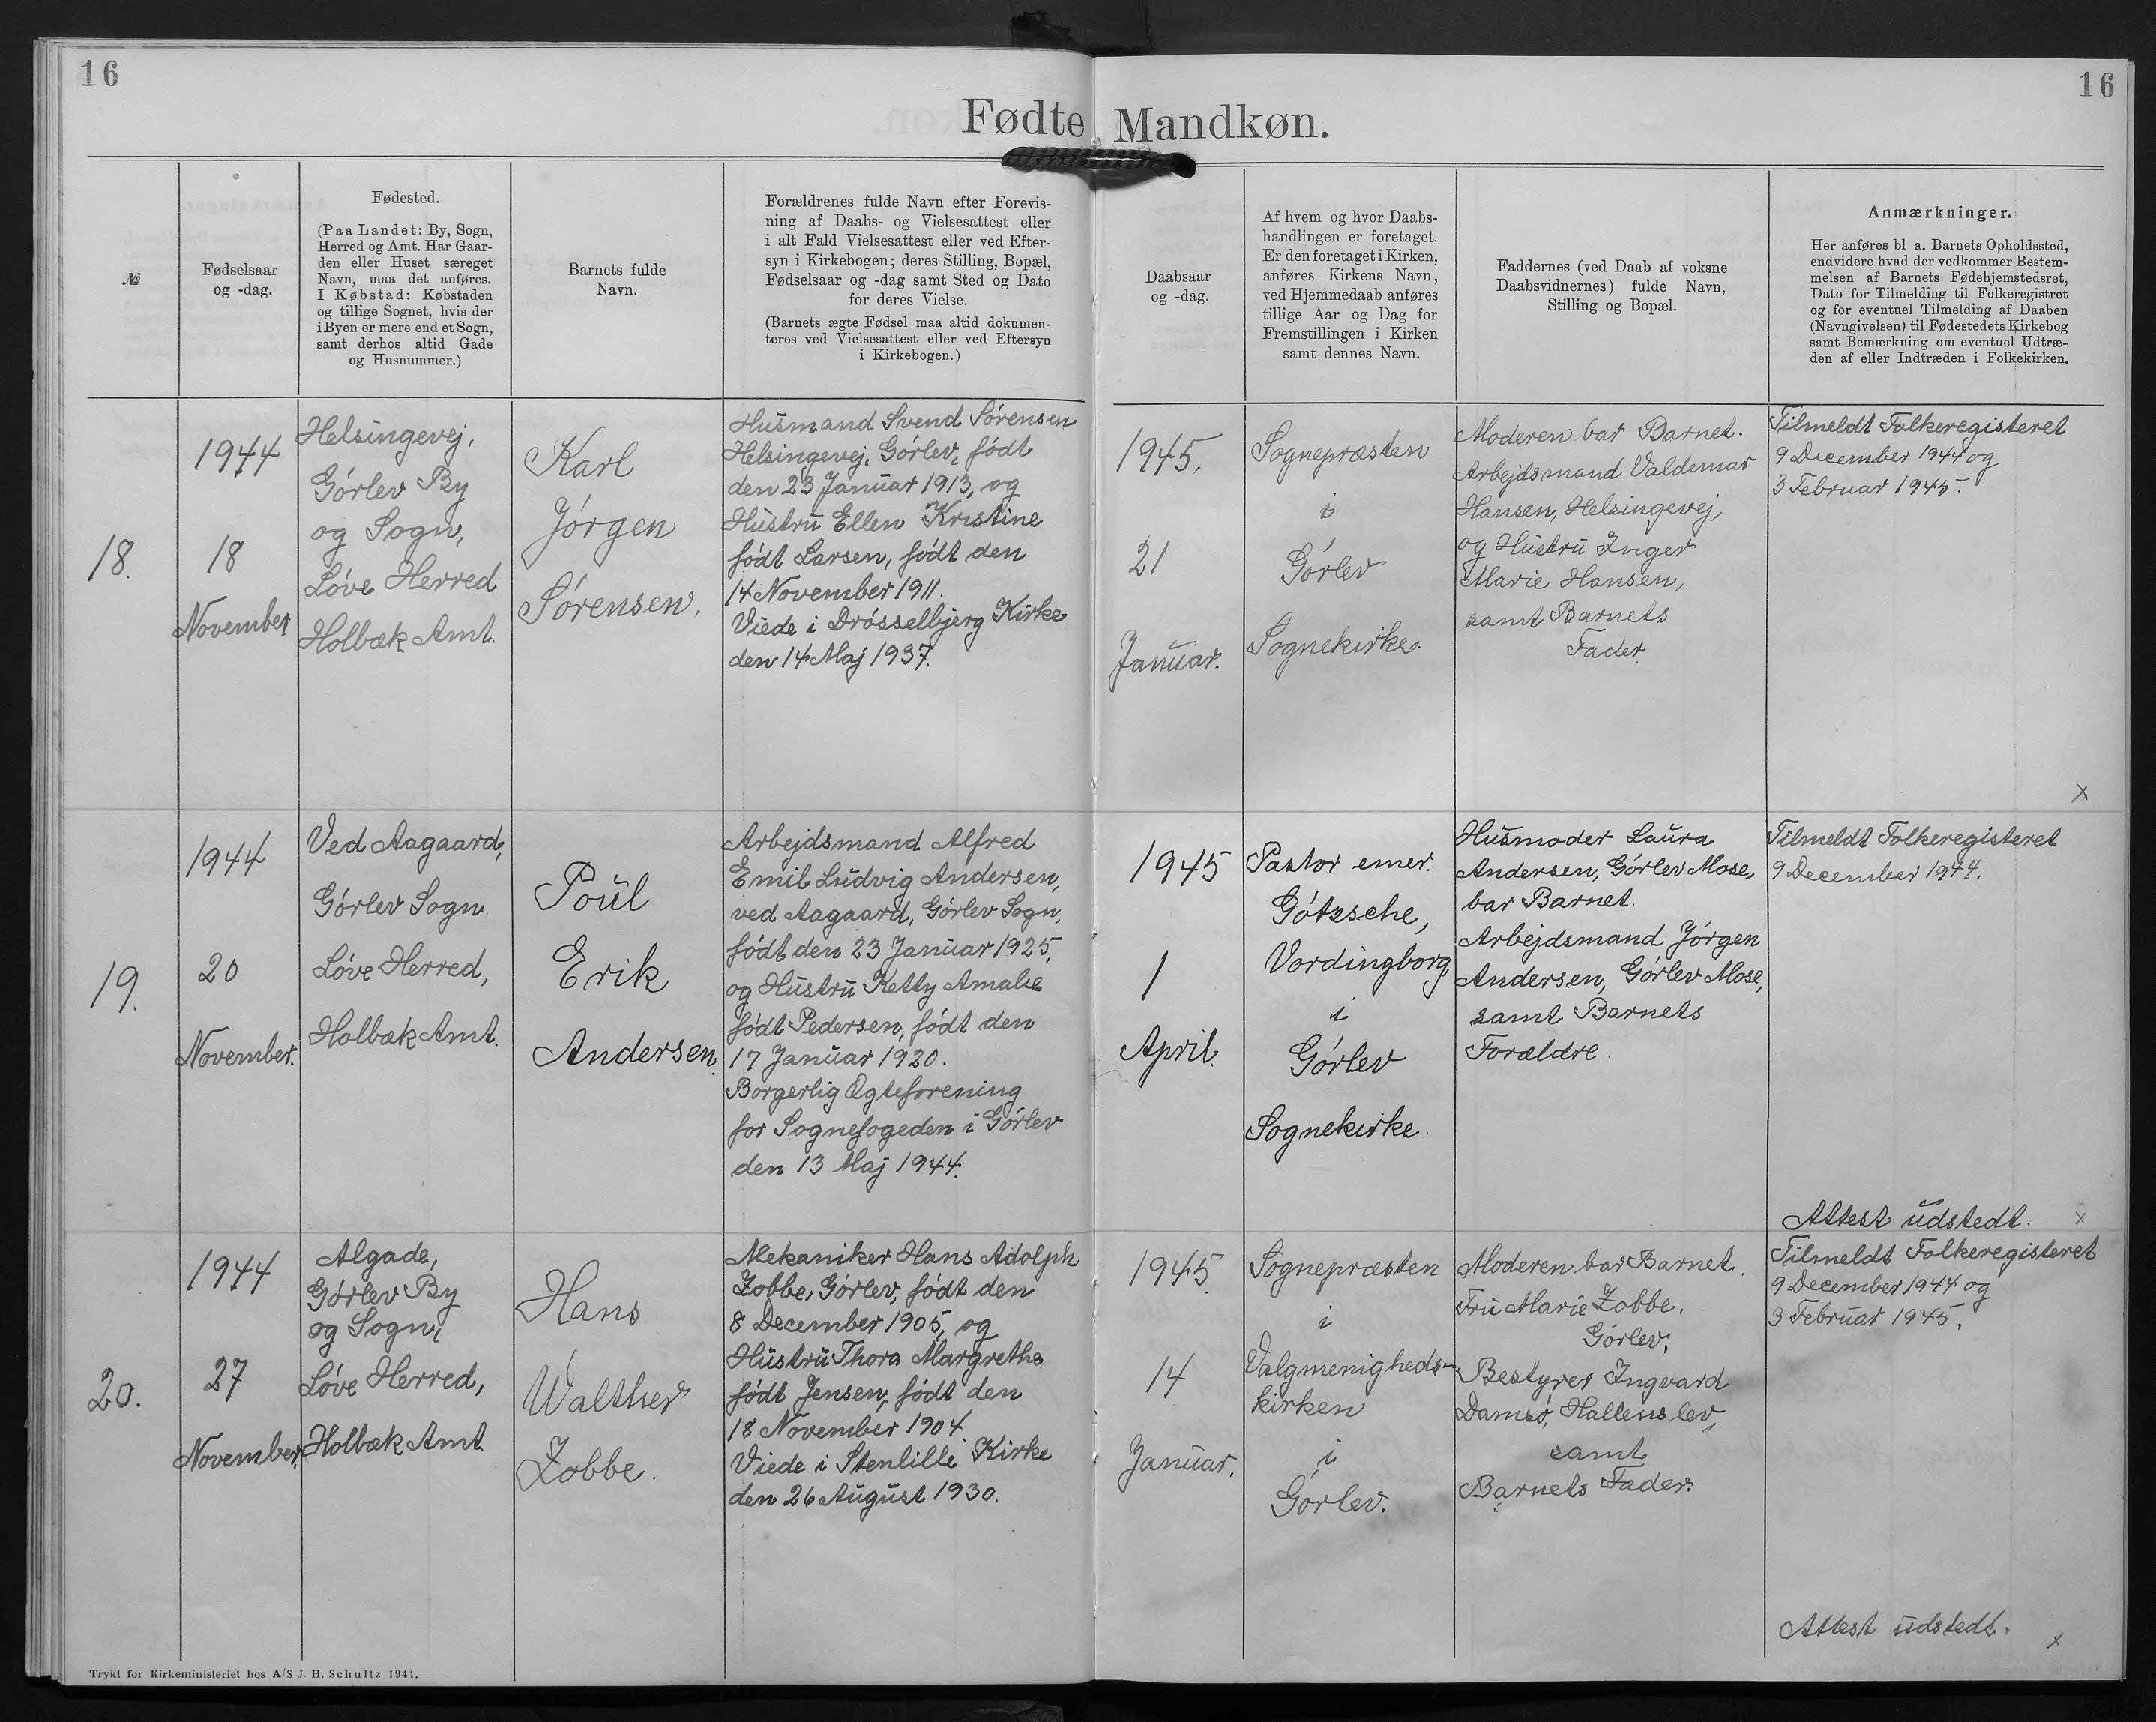 16
16
Fødte Mandkøn.
№
Fødselsaar
og -dag.
Fødested.
(Paa Landet: By, Sogn,
Herred og Amt. Har Gaar-
den eller Huset særeget
Navn, maa det anføres.
I Købstad: Købstaden
og tillige Sognet, hvis der
i Byen er mere end et Sogn,
samt derhos altid Gade
og Husnummer.)
Barnets fulde
Navn.
Forældrenes fulde Navn efter Forevis-
ning af Daabs- og Vielsesattest eller
i alt Fald Vielsesattest eller ved Efter-
syn i Kirkebogen; deres Stilling, Bopæl,
Fødselsaar og -dag samt Sted og Dato
for deres Vielse.
(Barnets ægte Fødsel maa altid dokumen-
teres ved Vielsesattest eller ved Eftersyn
i Kirkebogen.)
Daabsaar
og -dag.
Af hvem og hvor Daabs-
handlingen er foretaget.
Er den foretaget i Kirken,
anføres Kirkens Navn,
ved Hjemmedaab anføres
tillige Aar og Dag for
Fremstillingen i Kirken
samt dennes Navn.
Faddernes (ved Daab af voksne
Daabsvidnernes) fulde Navn,
Stilling og Bopæl.
Anmærkninger.
Her anføres bl a. Barnets Opholdssted,
endvidere hvad der vedkommer Bestem-
melsen af Barnets Fødehjemstedsret,
Dato for Tilmelding til Folkeregistret
og for eventuel Tilmelding af Daaben
(Navngivelsen) til Fødestedets Kirkebog
samt Bemærkning om eventuel Udtræ-
den af eller Indtræden i Folkekirken.
18.
1944
18
November
Helsingevej,
Górlev By
og Sogn,
Lóve Herred
Holbæk Amt.
Karl
Jórgen
Sórensen.
Husmand Svend Sórensen
Helsingevej, Górlev, fódt
den 23 Januar 1913, og
Hustru Ellen Kristine
fódt Larsen, fódt den
14 November 1911.
Viede i Drósselbjerg Kirke
den 14 Maj 1937.
1945.
21
Januar.
Sognepræsten
i
Górlev
Sognekirke.
Moderen bar Barnet.
Arbejdsmand Valdemar
Hansen, Helsingevej,
og Hustru Inger
Marie Hansen,
samt Barnets
Fader.
Tilmeldt Folkeregisteret
9 December 1944 og
3 Februar 1945.
x
19.
1944
20
November.
Ved Aagaard,
Górlev Sogn
Lóve Herred,
Holbæk Amt.
Poul
Erik
Andersen.
Arbejdsmand Alfred
Emil Ludvig Andersen,
ved Aagaard, Górlev Sogn,
fódt den 23 Januar 1925,
og Hustru Ketty Amalie
fódt Pedersen, fódt den
17 Januar 1920.
Borgerlig Ægteforening
for Sognefogeden i Górlev
den 13 Maj 1944.
1945
1
April.
Pastor emer.
Gótzsche,
Vordingborg,
i
Górlev
Sognekirke.
Husmoder Laura
Andersen, Górlev Mose,
bar Barnet.
Arbejdsmand Jórgen
Andersen, Górlev Mose,
samt Barnets
Forældre.
Tilmeldt Folkeregisteret
9 December 1944.
Attest udstedt. x
20.
1944
27
November.
Algade,
Górlev By
og Sogn,
Lóve Herred,
Holbæk Amt.
Hans
Walther
Zobbe.
Mekaniker Hans Adolph
Zobbe, Górlev, fódt den
8 December 1905, og
Hustru Thora Margrethe
fódt Jensen, fódt den
18 November 1904.
Viede i Stenlille Kirke
den 26 August 1930.
1945.
14
Januar.
Sognepræsten
i
Valgmenigheds-
kirken
i
Górlev.
Moderen bar Barnet.
Fru Marie Zobbe,
Górlev.
Bestyrer Ingvard
Damsó, Hallenslev,
samt
Barnets Fader.
Tilmeldt Folkeregisteret
9 December 1944 og
3 Februar 1945.
Attest udstedt. x
Trykt for Kirkeministeriet hos A/S J. H. Schultz 1941.